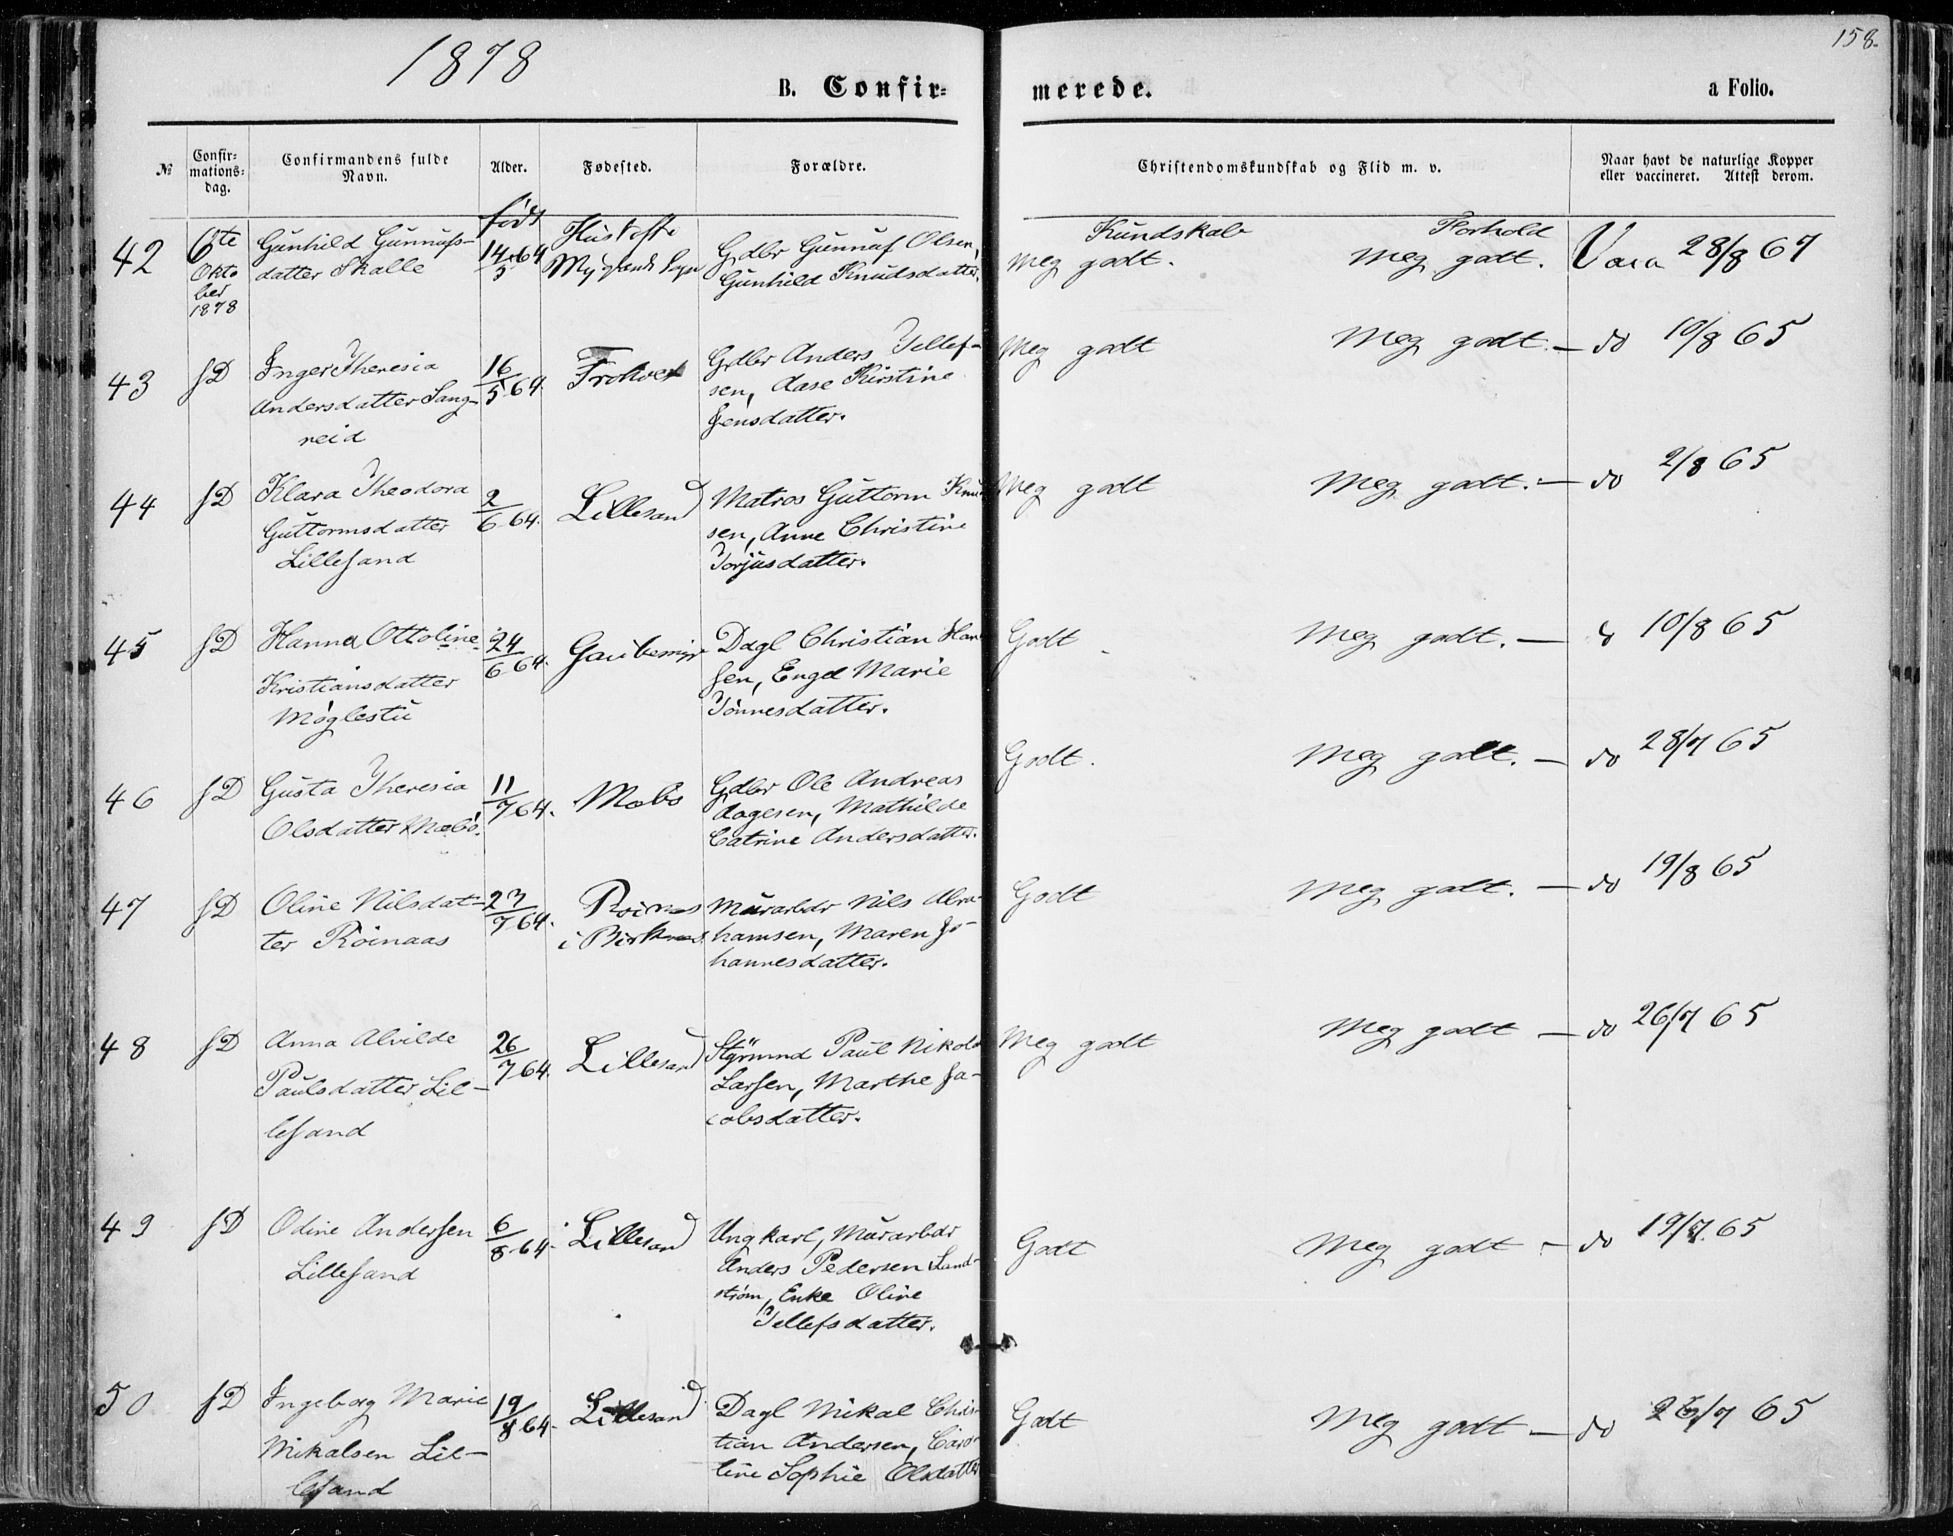 1878
158.
B. Confir=
merede.
a Folio.
№
Confir=
mations=
dag.
Confirmandens fulde
Navn.
Alder.
Fødested.
Forældre.
Christendomskundskab og Flid m. v.
Naar havt de naturlige Kopper
eller vaccineret. Attest derom.
42
6te
Okto
ber
1878
Gunhild Gunnufs-
datter Skalle
født
14/5 64
Gdbr Gunnuf Olsen,
Gunhild Knudsdatter.
Kundskab
Meg godt.
Forhold
Meg godt.
Vacc 28/8 67
43
SD
Inger Theresia
Andersdatter Sang-
reid
16/5 64.
Gdbr Anders Tellef-
sen, Aase Kirstine
Jensdatter.
Meg godt
Meg godt. — do 10/8 65
44
SD
Klara Theodora
Guttormsdatter
Lillesand
2/6 64.
Lillesand
Matros Guttorm Knud
sen, Anne Christine
Torjusdatter.
Meg godt
Meg godt. — do 2/8 65
45
SD
Hanna Ottoline
Kristiansdatter
Møglestu
24/6 64.
Dagl Christian Han
sen, Engel Marie
Tönnesdatter.
Godt
Meg godt. — 10/8 65
46
SD
Gusta Theresia
Olsdatter Mæbö.
11/7 64.
Mæbö
Gdbr Ole Andreas
Aagesen, Mathilde
Catrine Andersdatter.
Godt.
Meg godt. — do 28/7 65
47
SD
Oline Nilsdat-
ter Röinaas
23/7 64.
i Birkenes
Murarbdr Nils Abra-
hamsen, Maren Jo-
hannesdatter.
Godt
Meg godt. — do 19/8 65
48
SD
Anna Alvilde
Paulsdatter Lil-
lesand
26/7 64.
Lillesand
Styrmnd Paul Nikolai
Larsen, Marthe Ja-
cobsdatter.
Meg godt
Meg godt — do 26/7 65
49
SD
Odine Andersen
Lillesand
6/8 64.
Lillesand
Ungkarl, Murarbdr
Anders Pedersen Land-
strøm, Enke Oline
Tellefsdatter.
Godt
Meg godt - do 19/7 65
50
SD
Ingeborg Marie
Mikalsen Lil-
lesand
19/8 64.
Lillesand
Dagl Mikal Chris-
tian Andersen, Caro-
line Sophie Olsdatter
Godt
Meg godt — do 26/7 65